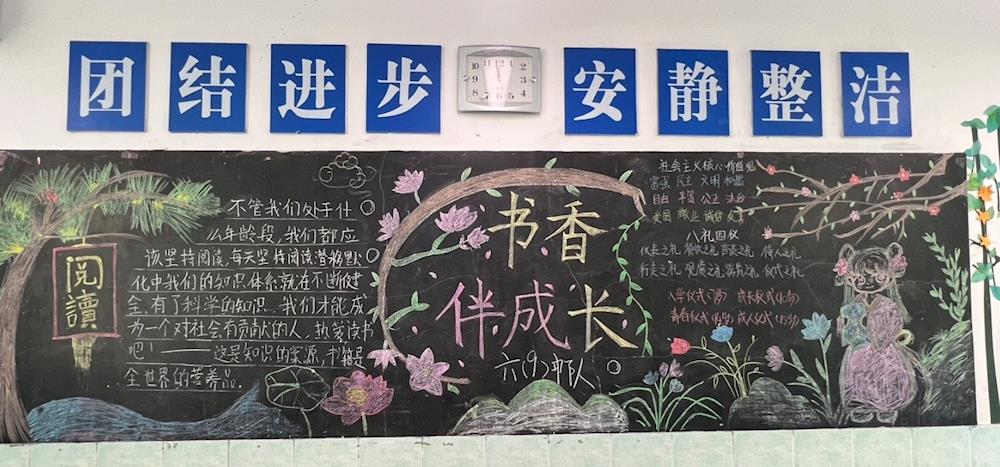 团结进步 安静整洁
阅讀
不管我们处于什
么年龄段,我们都应
该坚持阅读,每天坚持阅读潜移默
化中我们的知识体系就在不断健
全,有了科学的知识,我们才能成
为一个对社会有贡献的人,热爱读书
吧!——这是知识的来源,书籍是
全世界的营养品。
书香
伴成长
六(9)部队
社会主义核心价值观
富强 民主 文明 和谐
自由 平等 公正 法治
爱国 敬业 诚信 友善
八礼四仪
仪表之礼 餐饮之礼 言谈之礼 待人之礼
行走之礼 观赏之礼 游览之礼 仪式之礼
入学仪式(7岁) 成长仪式(10岁)
青春仪式(14岁) 成人仪式(18岁)